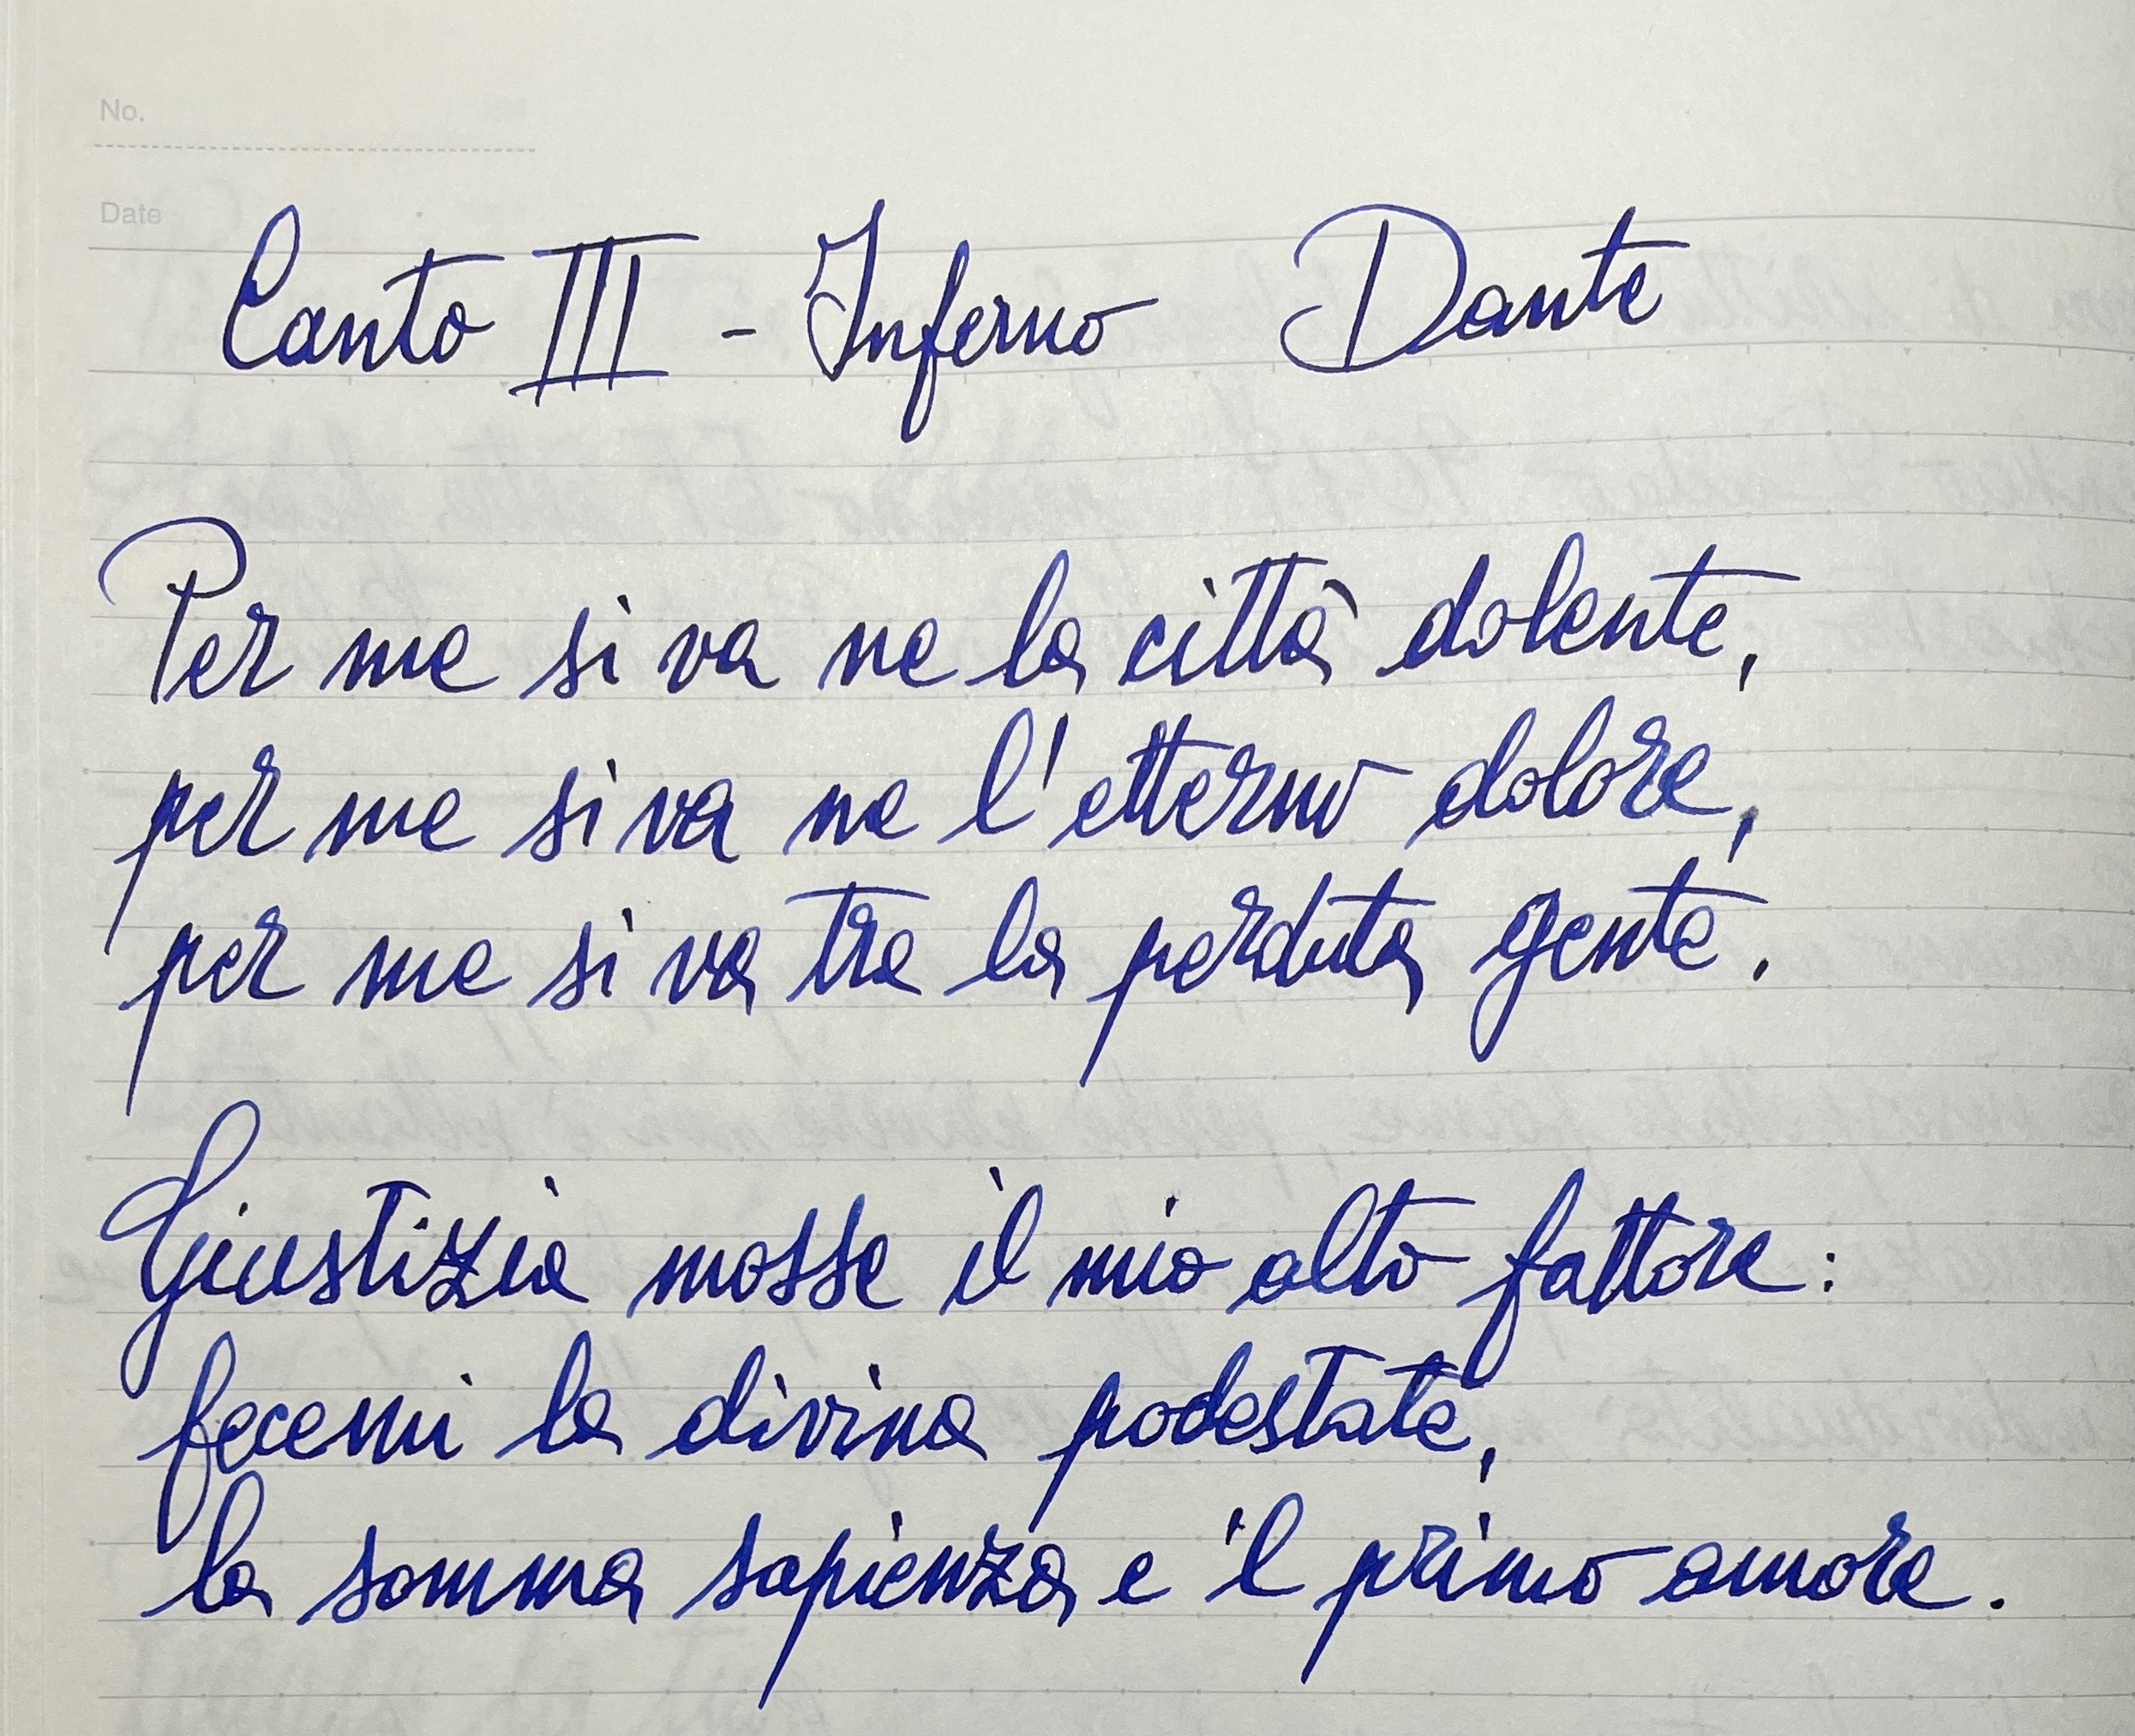 No.
Date
Canto III - Inferno Dante
Per me si va ne la città dolente,
per me si va ne l'etterno dolore,
per me si va tra la perduta gente.
Giustizia mosse il mio alto fattore:
fecemi la divina podestate,
la somma sapienza e 'l primo amore.